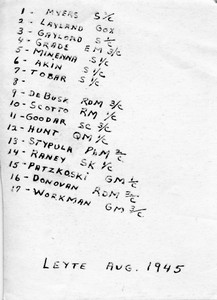 1 - MYERS S 1/C
2 - LAYLAND COX
3 - GAYLORD S 1/C
4 - GRADE EM 3/C
5 - MINENNA S 1/C
6 - AKIN S 1/C
7 - TOBAR S 1/C
8 -
9 - DEBUSK RDM 3/C
10 - SCOTTO RM 1/C
11 - GOODAR SC 3/C
12 - HUNT QM 1/C
13 - STYPULA PhM 2/C
14 - RANEY SK 1/C
15 - PATZKOSKI GM 1/C
16 - DONOVAN RDM 3/C
17 - WORKMAN GM 3/C
LEYTE AUG. 1945